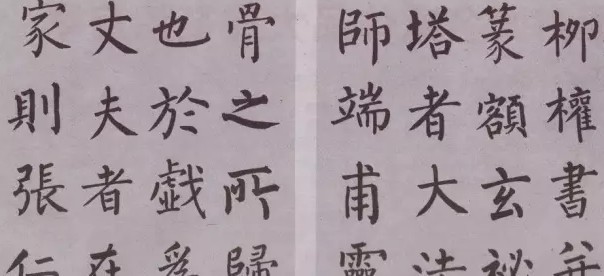 柳權書并
篆額玄祕
塔者大法
師端甫靈
骨之所歸
也於戲爲
丈夫者在
家則張仁